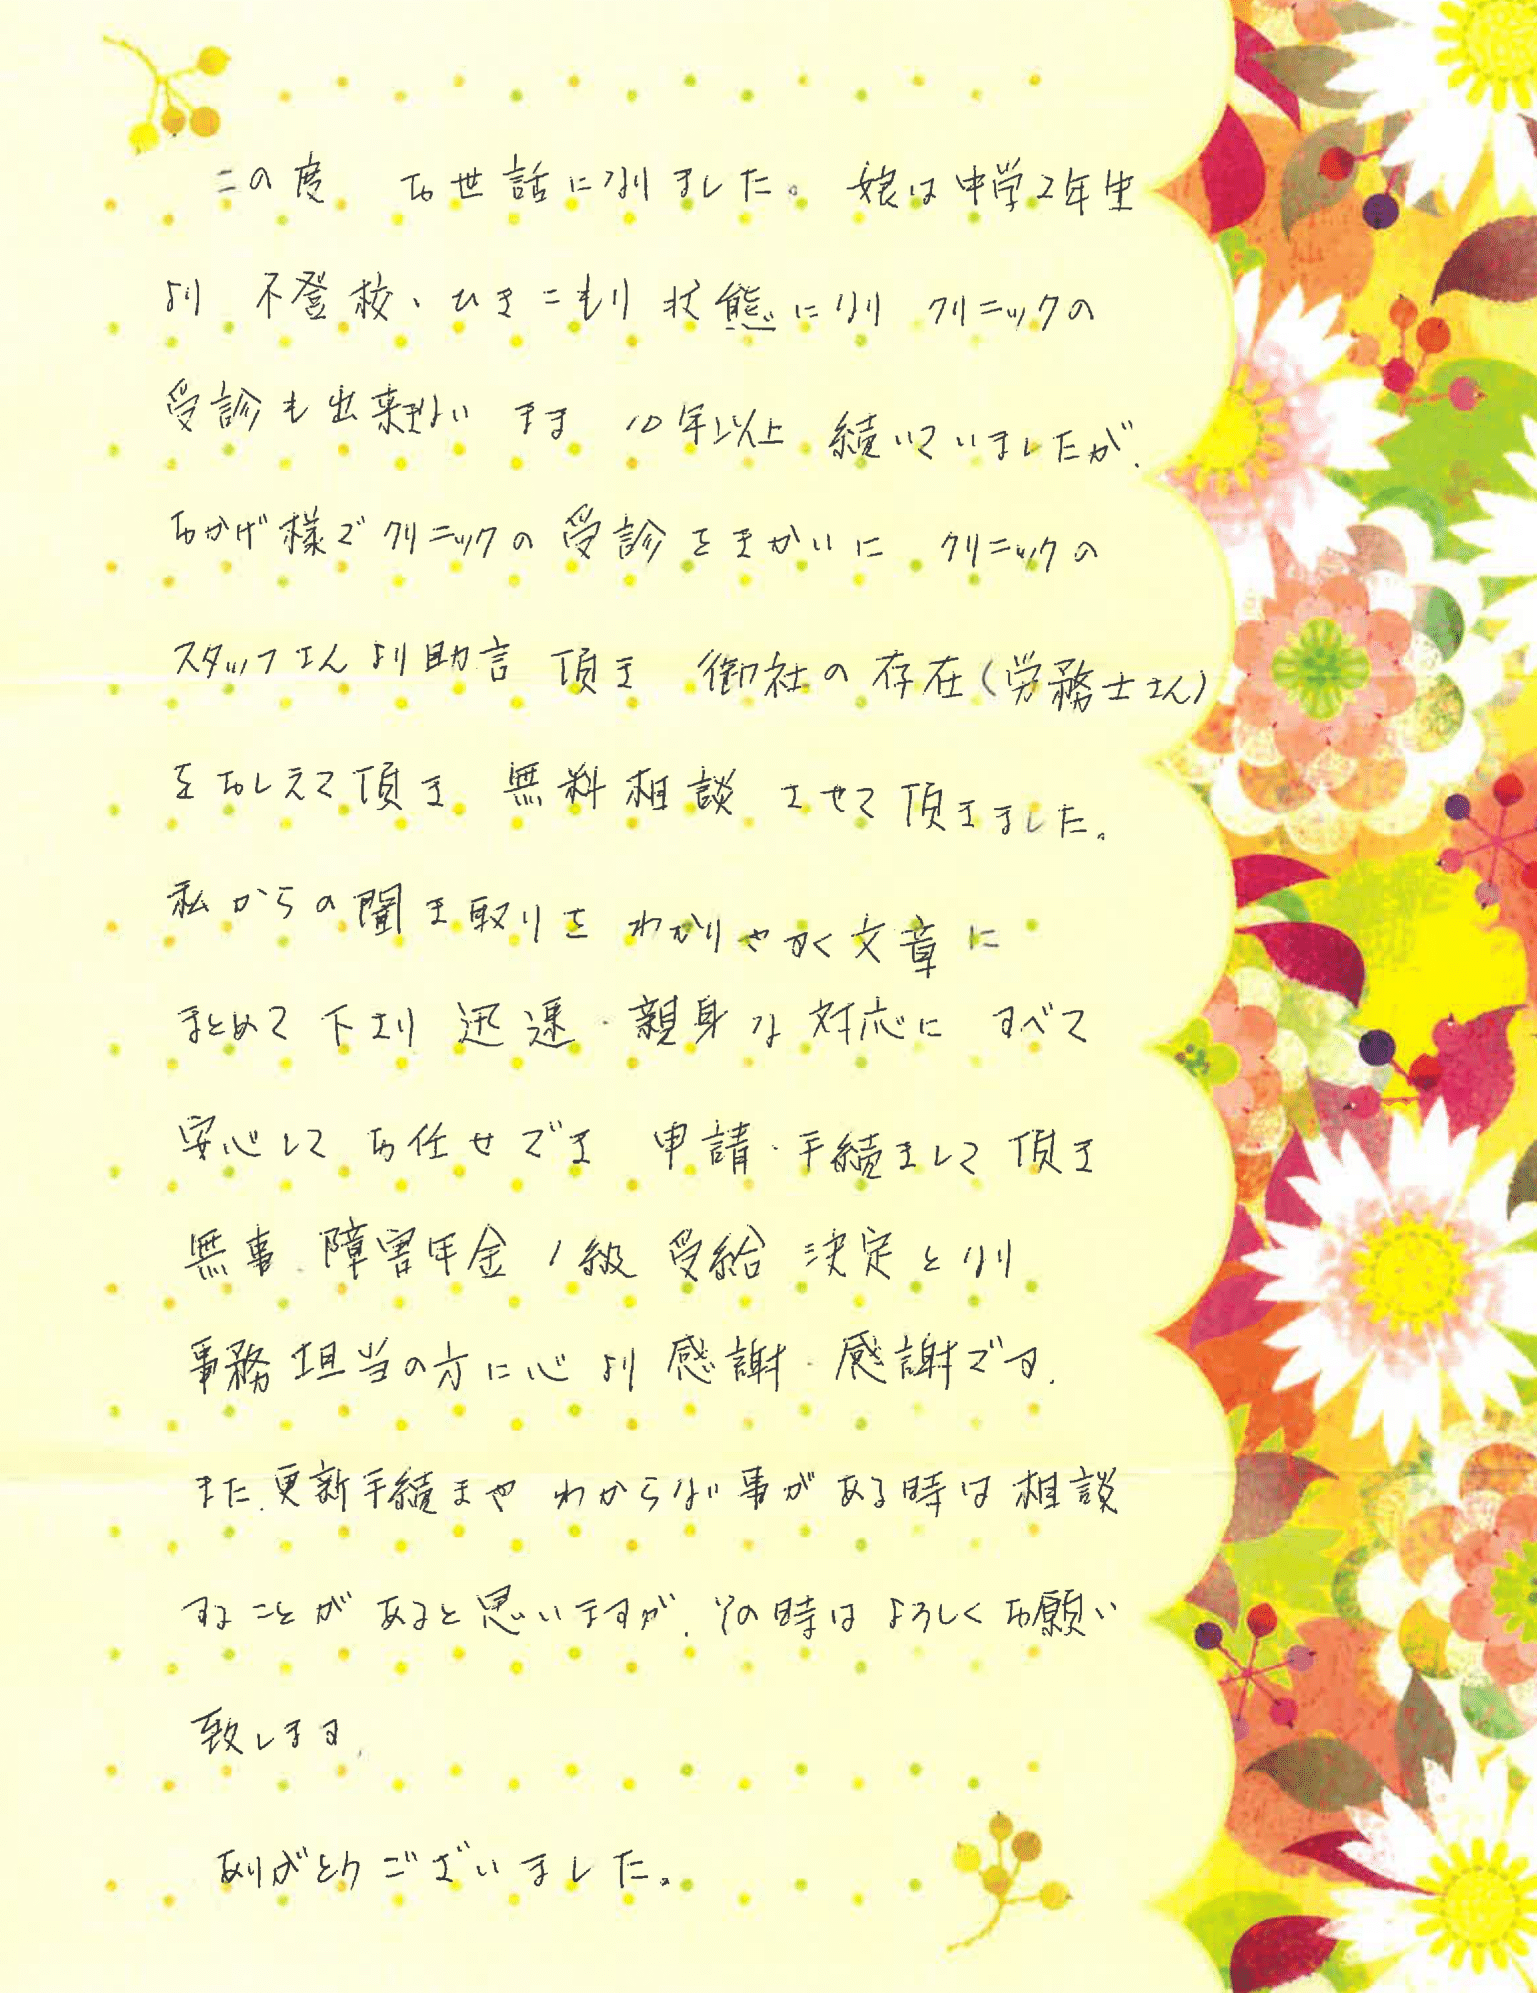 この度 お世話になりました。 娘は中学2年生
より 不登校、ひきこもり 状態になり クリニックの
受診も出来ない まま 10年以上 続いていましたが、
おかげ様でクリニックの受診をきかいに クリニックの
スタッフさんより助言 頂き 御社の存在(労務士さん)
をおしえて頂き 無料相談 させて頂きました。
私からの聞き取りを わかりやすく文章に
まとめて下さり 迅速・親身な対応に すべて
安心して お任せでき 申請・手続きして 頂き
無事、障害年金 1級 受給 決定となり
事務担当の方に心より 感謝・感謝です。
また、更新手続きや わからない事がある時は相談
することが あると思いますが、その時は よろしくお願い
致します。
ありがとうございました。